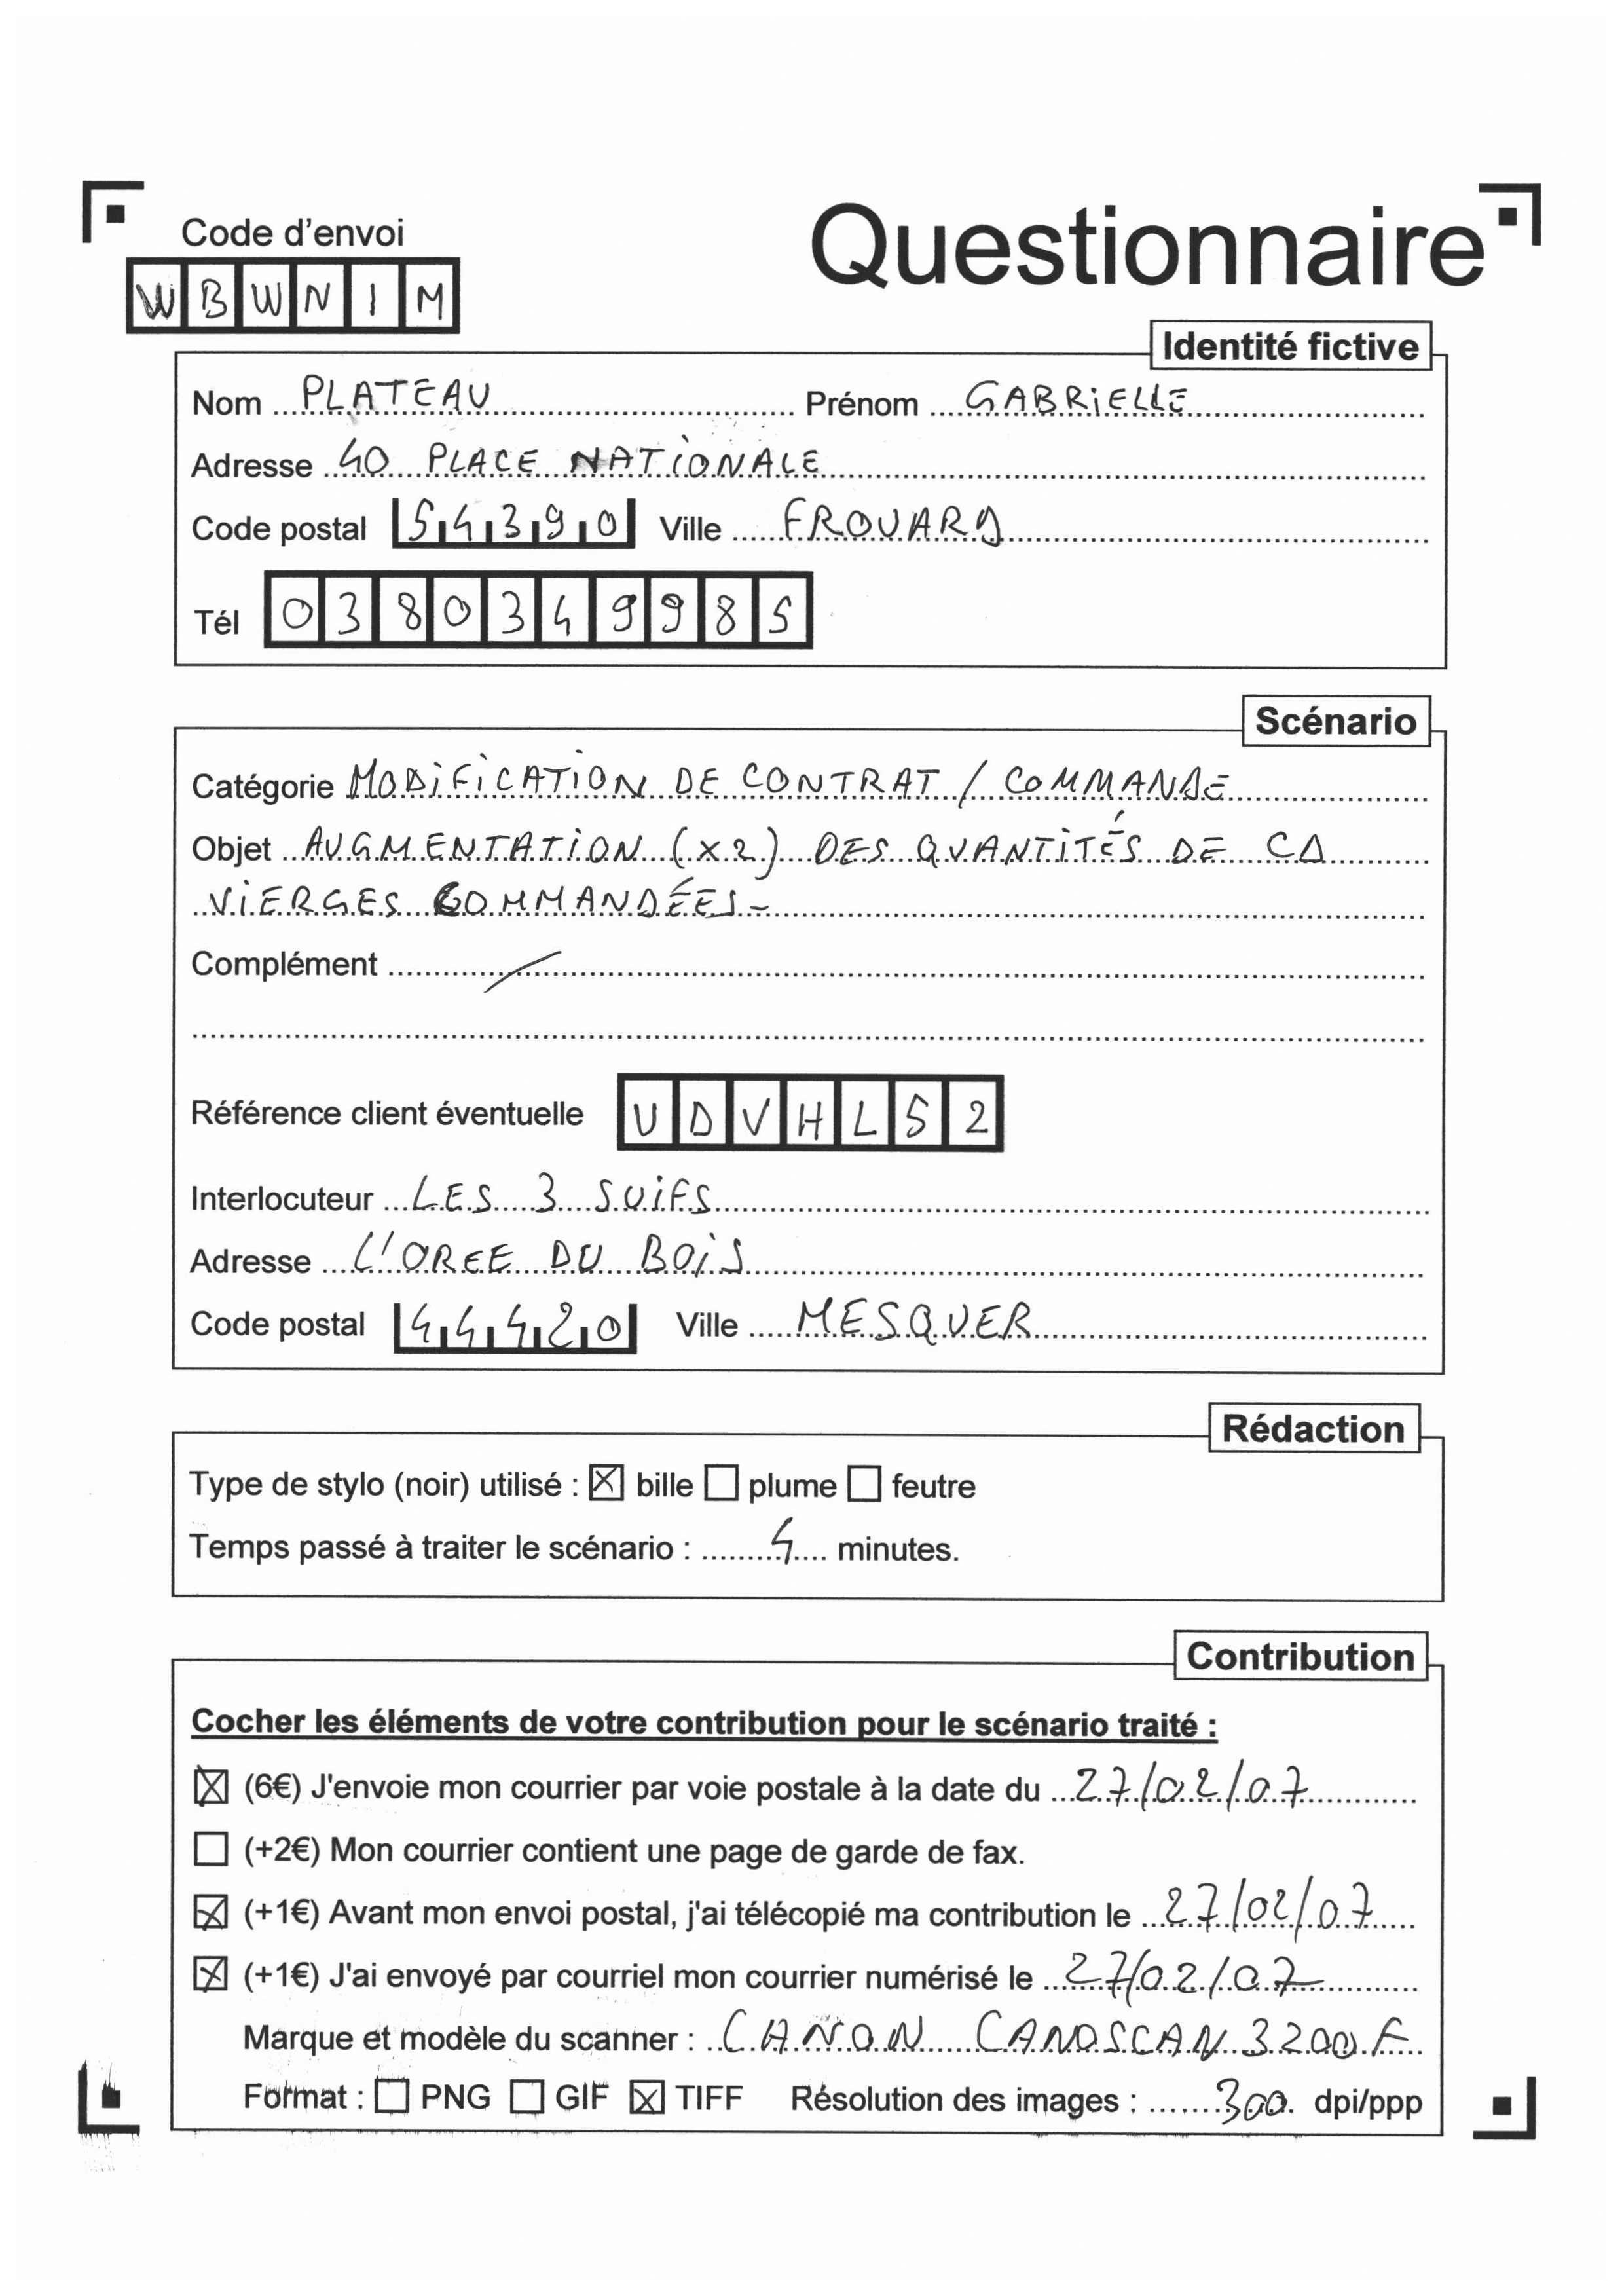 Code d'envoi
WBWNIM
Questionnaire
Identité fictive
Nom PLATEAU Prénom GABRIELLE
Adresse 40 PLACE NATIONALE
Code postal 54390 Ville FROUARD
Tél 0380349985
Scénario
Catégorie MODIFICATION DE CONTRAT / COMMANDE
Objet AUGMENTATION (x2) DES QUANTITÉS DE CD
VIERGES COMMANDÉES-
Complément /
Référence client éventuelle UDVHL52
Interlocuteur LES 3 SUIFS
Adresse L'OREE DU BOIS
Code postal 44420 Ville MESQUER
Rédaction
Type de stylo (noir) utilisé : ☒ bille ☐ plume ☐ feutre
Temps passé à traiter le scénario : 4 minutes.
Contribution
Cocher les éléments de votre contribution pour le scénario traité :
☒ (6€) J'envoie mon courrier par voie postale à la date du 27/02/07
☐ (+2€) Mon courrier contient une page de garde de fax.
☒ (+1€) Avant mon envoi postal, j'ai télécopié ma contribution le 27/02/07
☒ (+1€) J'ai envoyé par courriel mon courrier numérisé le 27/02/07
Marque et modèle du scanner : CANON CANOSCAN 3200F
Format : ☐ PNG ☐ GIF ☒ TIFF Résolution des images : 300 dpi/ppp